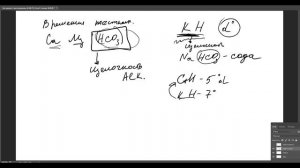 Временная жесткость
Ca Mg HCO₃
щелочность
Alk.
KH d°
щелочная
Na HCO₃ - сода
GH - 5°d
KH - 7°